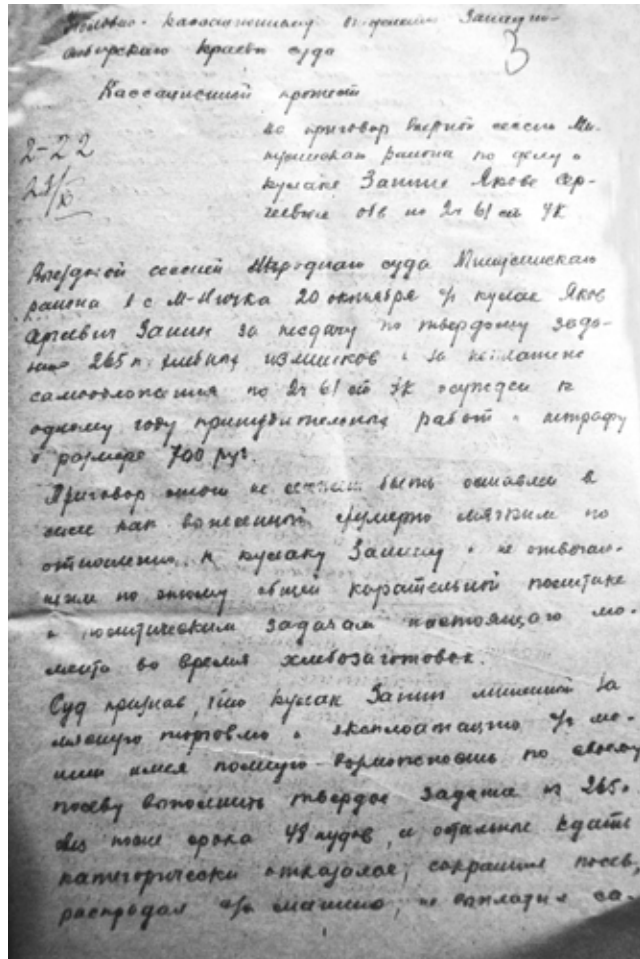 Уголовно-кассационному отделению Западно-
сибирского краевого суда
3
Кассационный протест
2-22
23/X
на приговор выездной сессии Ми-
нусинского района по делу о
кулаке Занине Якове Сер-
геевиче обв по 2ч 61 ст УК
Выездной сессией Народного суда Минусинского
района в с М-Ничка 20 октября с/г кулак Яков
Сергеевич Занин за несдачу по твердому зада-
нию 265 п. хлебных излишков и за неплатеж
самообложения по 2ч 61 ст УК осужден к
одному году принудительных работ и штрафу
в размере 700 руб.
Приговор этот не может быть оставлен в
силе как вынесенный чрезмерно мягким по
отношению к кулаку Занину и не отвечаю-
щем по этому общей карательной политике
и политическим задачам настоящего мо-
мента во время хлебозаготовок.
Суд признав, что кулак Занин лишенный за
торговлю и эксплоатацию с/х ма-
шин имея полную возможность по своему
посеву выполнить твердое задание в 265 п.
вез после срока 48 пудов, и остальные сдать
категорически отказался, сокращал посев,
распродал с/х машины, не выплатил са-